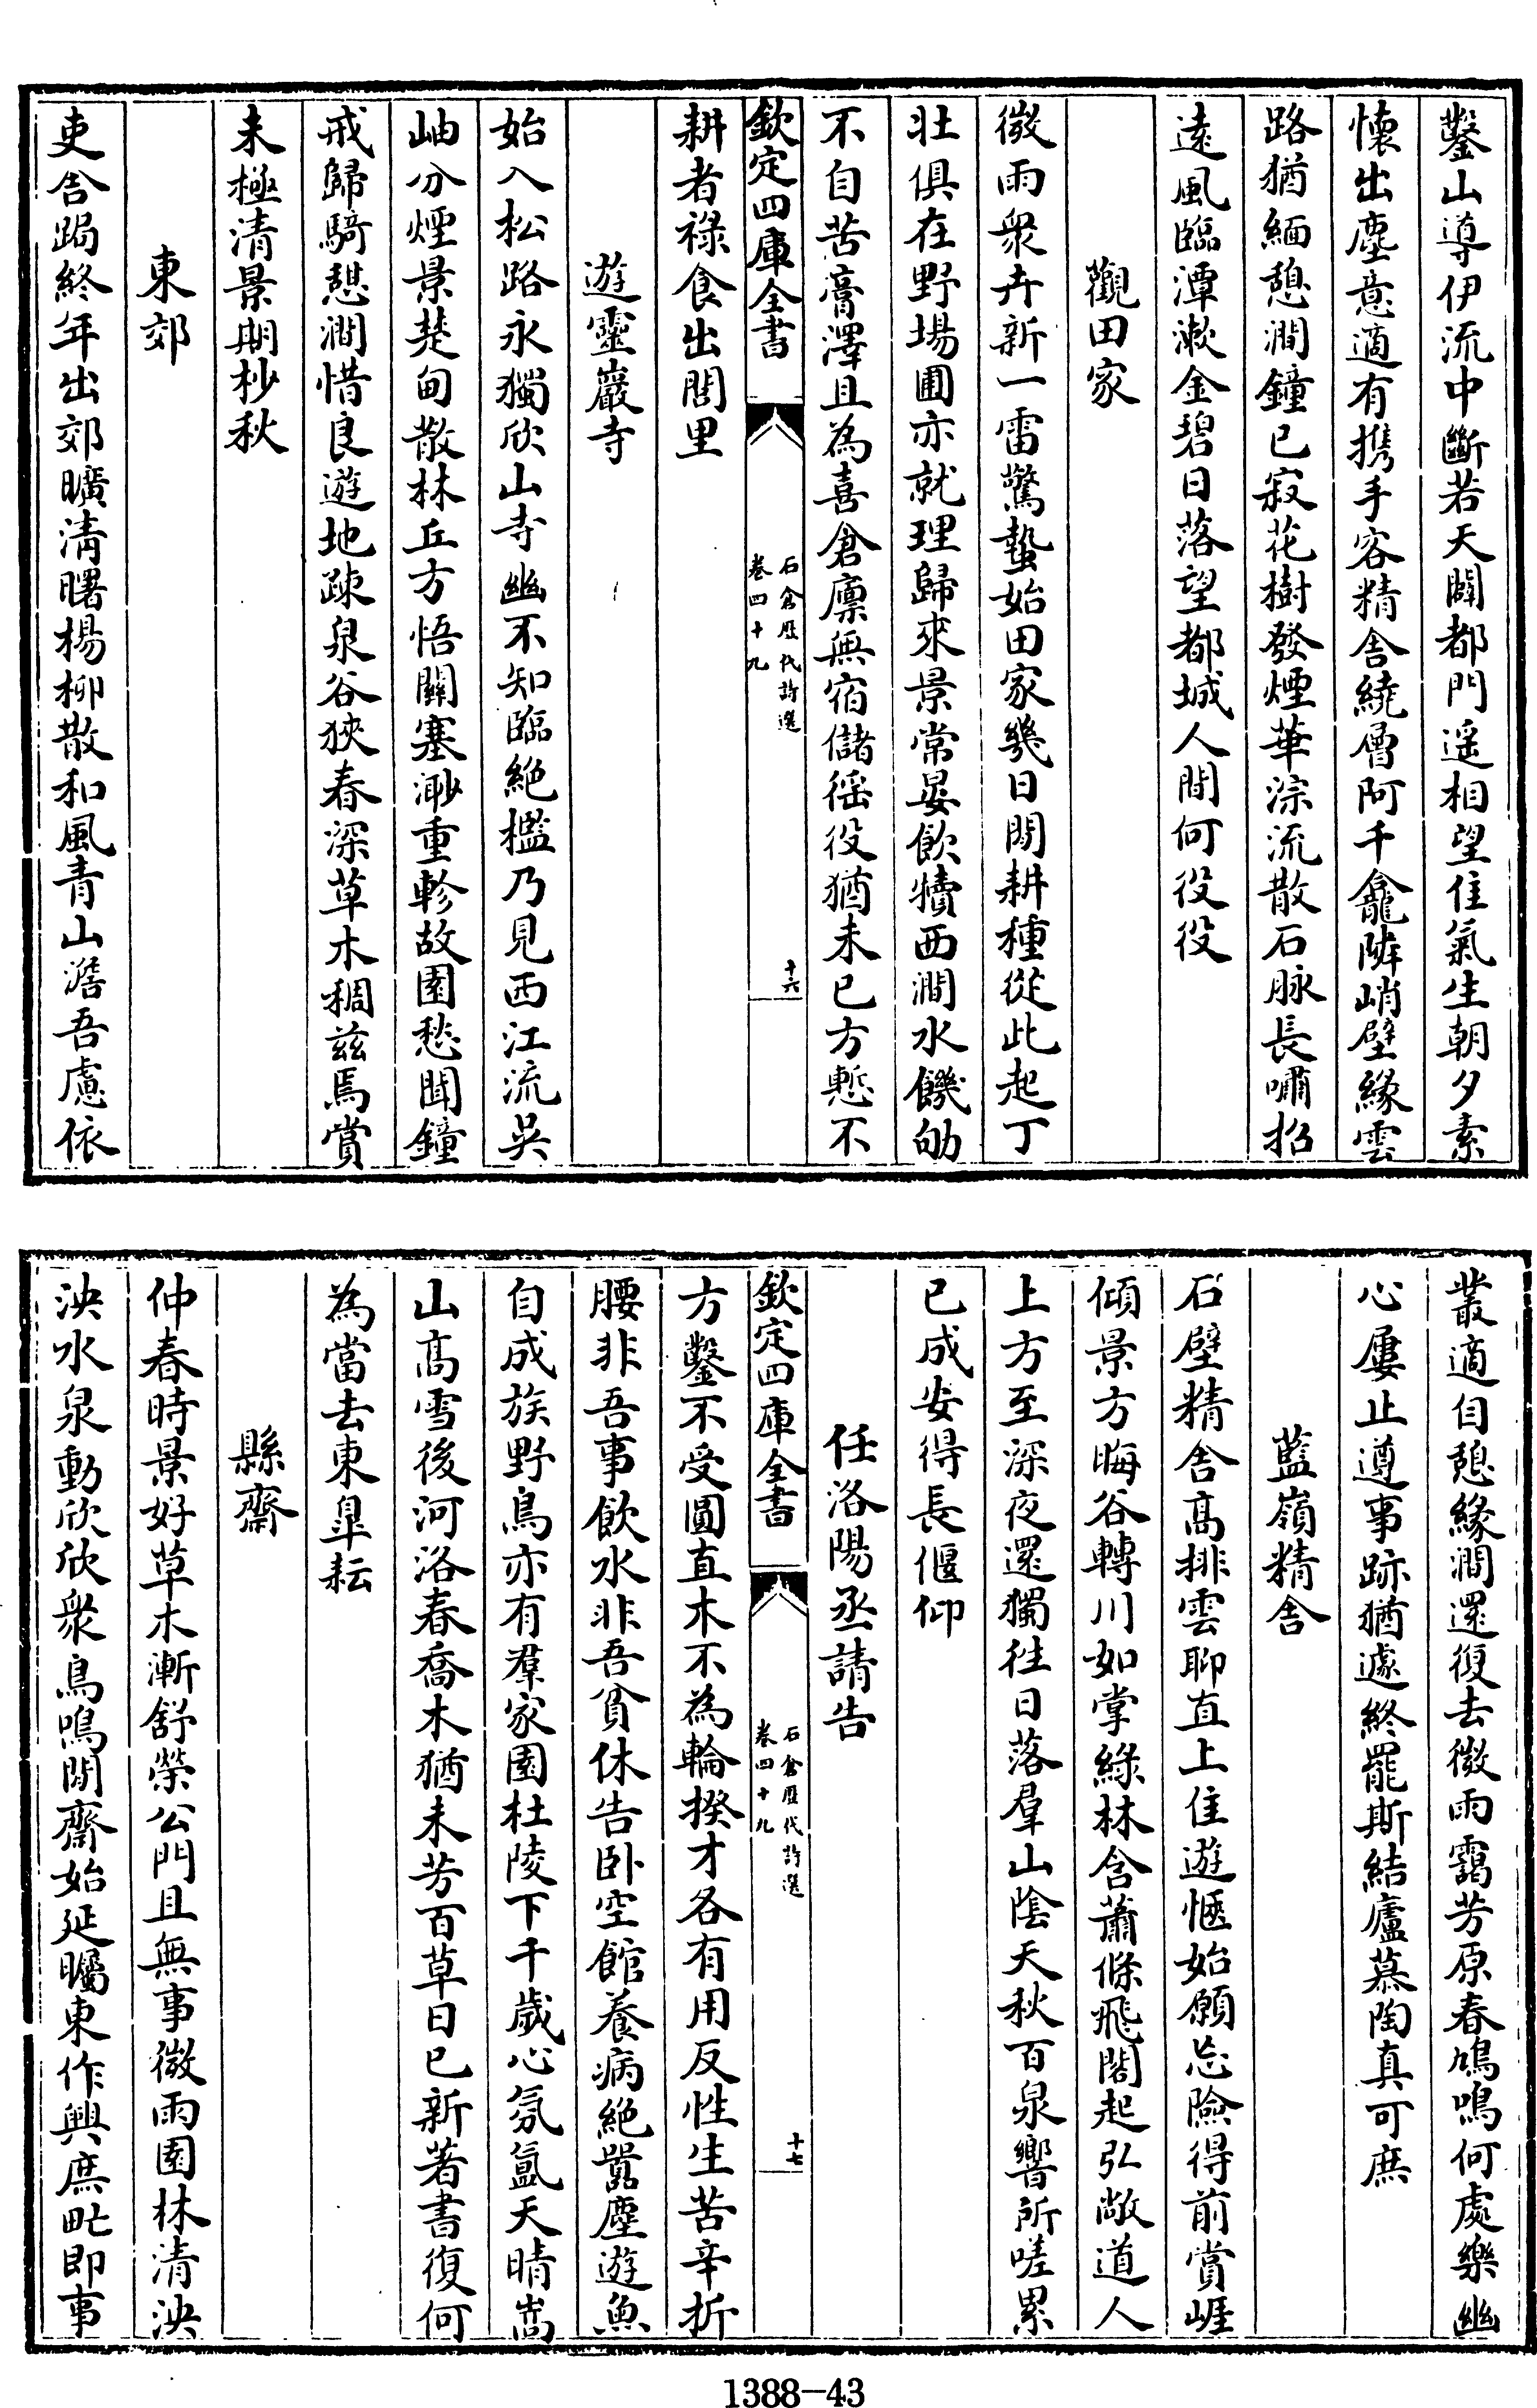 鑿山導伊流中斷若天闢都門遥相望佳氣生朝夕素
懷出塵意適有携手客精舍繞層阿千龕隣峭壁緣雲
路猶緬憩澗鐘已寂花樹發煙華淙流散石脉長嘯招
遠風臨潭漱金碧日落望都城人間何役役
觀田家
微雨衆卉新一雷驚蟄始田家幾日閒耕種從此起丁
壯俱在野場圃亦就理歸來景常晏飲犢西澗水饑劬
不自苦膏澤且為喜倉廪無宿儲徭役猶未已方慙不
欽定四庫全書
石倉歷代詩選
卷四十九
十六
耕者祿食出閭里
遊靈巖寺
始入松路永獨欣山寺幽不知臨絶檻乃見西江流吳
岫分煙景楚甸散林丘方悟關塞渺重軫故園愁聞鐘
戒歸騎憩澗惜良遊地疎泉谷狹春深草木稠兹焉賞
未極清景期杪秋
東郊
吏舍跼終年出郊曠清曙楊柳散和風青山澹吾慮依
叢適自憩緣澗還復去微雨靄芳原春鳩鳴何處樂幽
心屢止遵事跡猶遽終罷斯結廬慕陶真可庶
藍嶺精舍
石壁精舍高排雲聊直上佳遊愜始願忘險得前賞崕
傾景方晦谷轉川如掌綠林含蕭條飛閣起弘敞道人
上方至深夜還獨往日落羣山陰天秋百泉響所嗟累
已成安得長偃仰
任洛陽丞請告
欽定四庫全書
石倉歷代詩選
卷四十九
十七
方鑿不受圓直木不為輪揆才各有用反性生苦辛折
腰非吾事飲水非吾貧休告卧空館養病絶囂塵遊魚
自成族野鳥亦有羣家園杜陵下千歲心氛氲天晴嵩
山高雪後河洛春喬木猶未芳百草日已新著書復何
為當去東臯耘
縣齋
仲春時景好草木漸舒榮公門且無事微雨園林清泱
泱水泉動欣欣衆鳥鳴閒齋始延矚東作興庶甿即事
1388—43